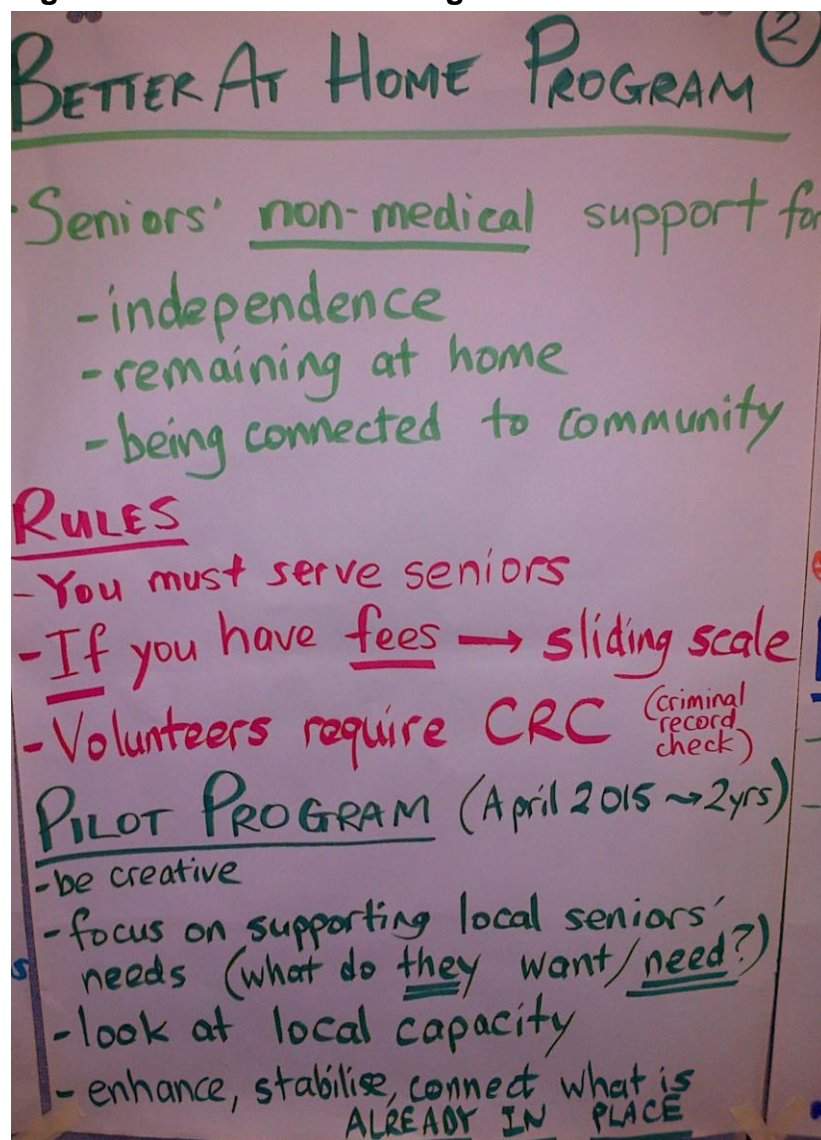 2
BETTER AT HOME PROGRAM
Seniors' non-medical support for
- independence
- remaining at home
- being connected to community
RULES
- You must serve seniors
- If you have fees → sliding scale
- Volunteers require CRC (criminal
record
check)
PILOT PROGRAM (April 2015 ~> 2yrs)
- be creative
- focus on supporting local seniors'
needs (what do they want/need?)
- look at local capacity
- enhance, stabilise, connect what is
ALREADY IN PLACE